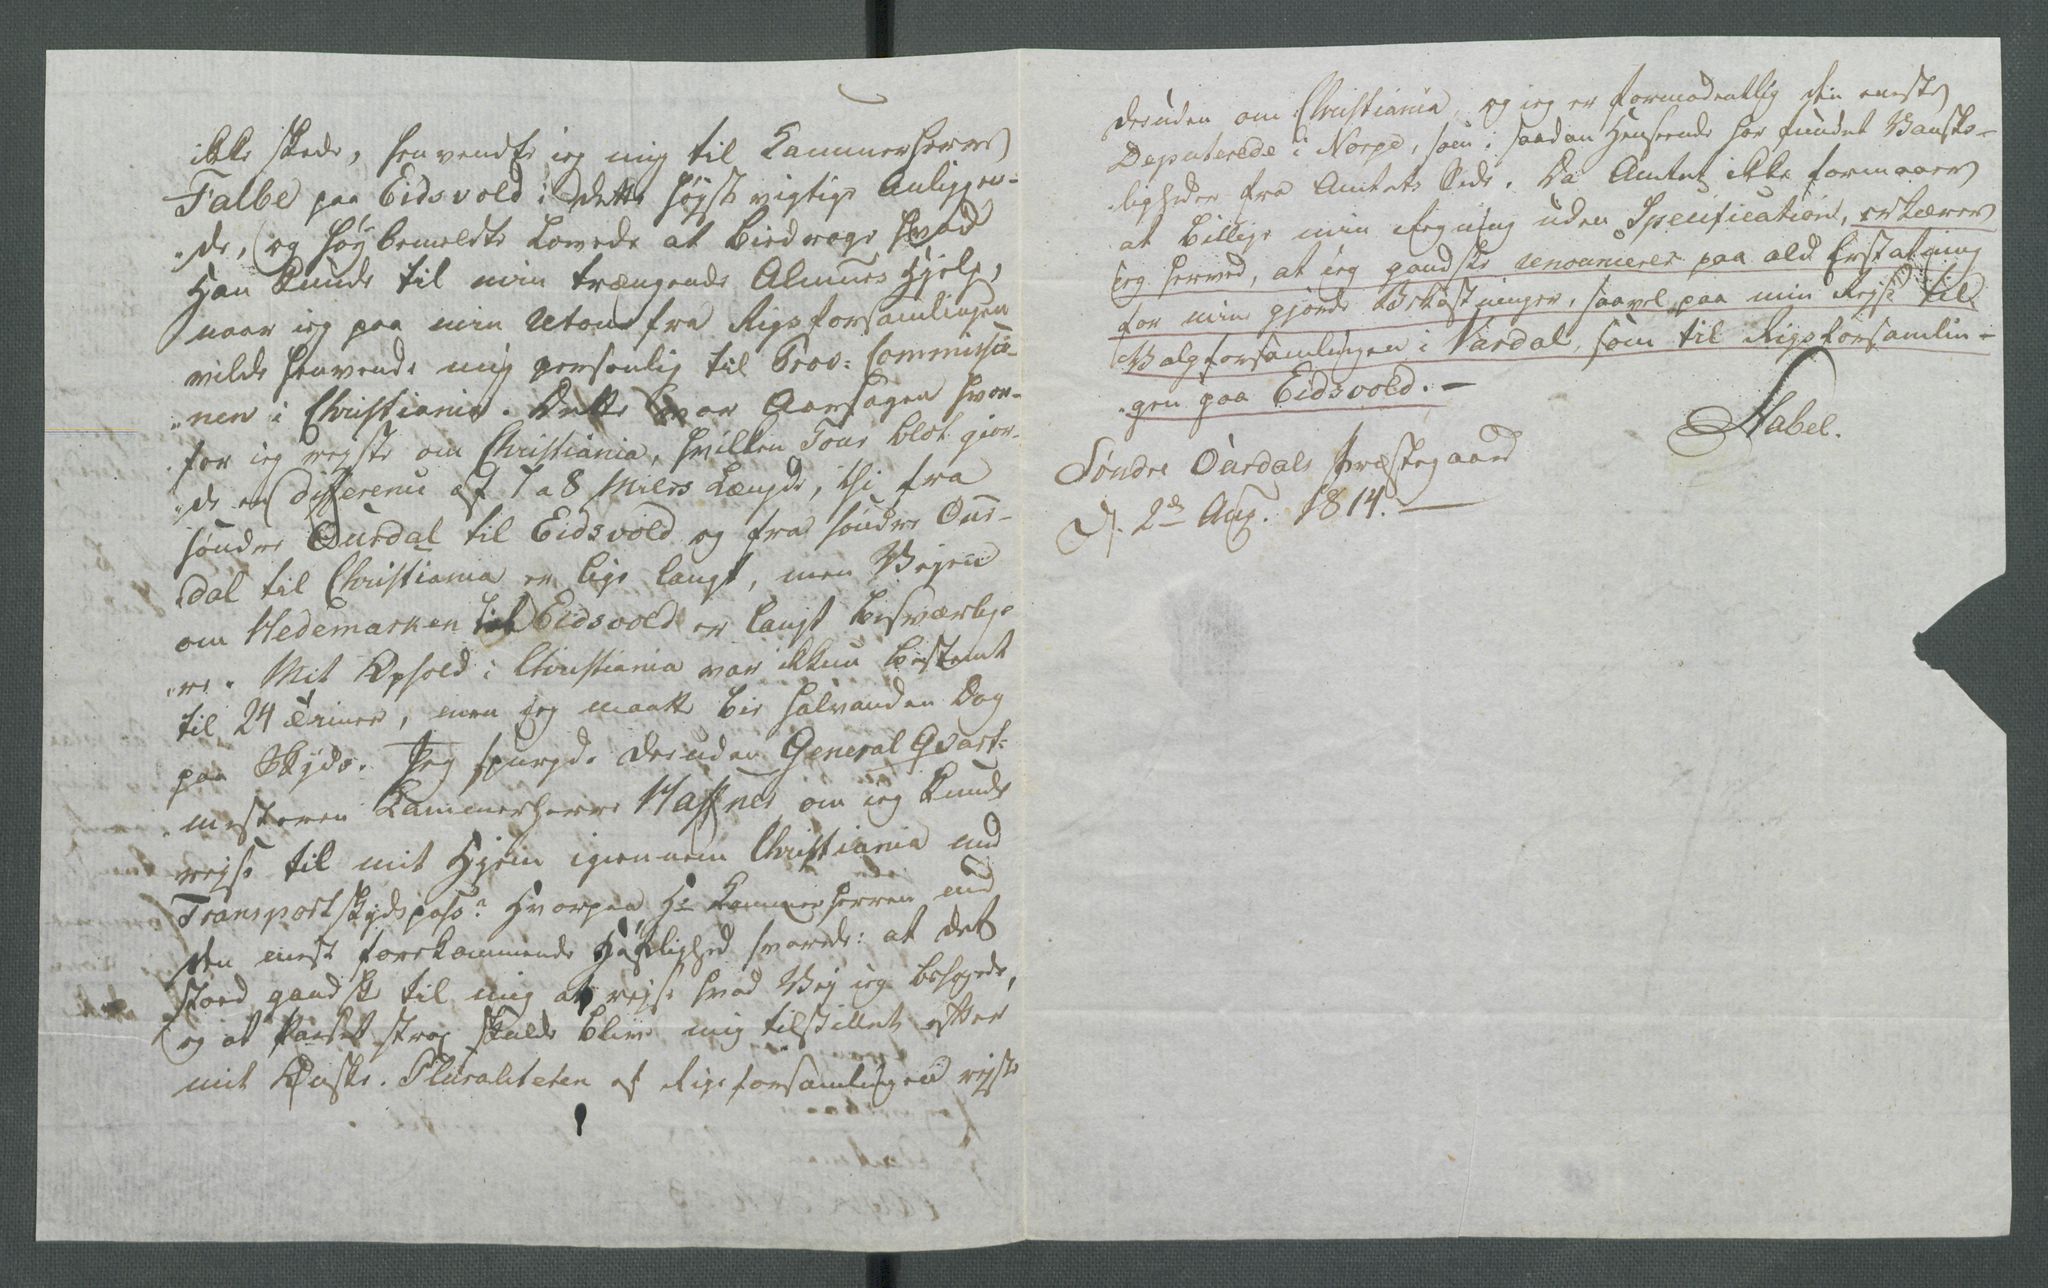 ikke skede, henvendte ieg mig til Kammerherre
Falbe paa Eidsvold i dette højst vigtige Anliggen-
„de, og høybemeldte lovede at bidrage hvad
Han kunde til min trængende Almues Hjelp,
naar ieg paa min Retour fra Rigsforsamlingen
vilde henvende mig personlig til Prov: Commissio-
„nen i Christiania. Dette var Aarsagen hvor-
for ieg rejste om Christiania, hvilken Tour blot gior-
„de en difference af 7 a 8 Miles Længde, thi fra
søndre Ourdal til Eidsvold og fra søndre Our-
dal til Christiania er lige langt, men Vejen
om Hedemarken til Eidsvold er langt besværlige
„re. Mit Ophold i Christiania var ikkun bestemt
til 24 Timer, men jeg maatte bie halvanden Dag
paa Skyds. Jeg spurgde desuden General Qvart:
„mesteren Kammerherre Haffner, om ieg kunde
rejse til mit Hjem igiennem Christiania med
Transportskydspass? Hvorpaa Hr Kammerherren med
den mest forekommende Høflighed svarede: at det
stoed gandske til mig at rejse hvad Vej ieg behagede,
og at Passet strax skulde blive mig tilstillet efter
mit Ønske. Pluraliteten af Rigsforsamlingen rejste
desuden om Christiania, og ieg er formodentlig den eneste
Deputerede i Norge, som i saadan Henseende har fundet Vanske-
„ligheder fra Amtets Side. Da Amtet ikke formaaer
at billige min Regning uden Specification, erklærer
jeg herved, at ieg gandske renouncerer paa ald Erstatning
for mine gjorde Bekostninger, saavel paa min Rejse til
Valgforsamlingen i Vardal, som til Rigsforsamlin-
„gen paa Eidsvold. -
Stabel.
Søndre Ourdals Præstegaard
D. 2d Aug. 1814.